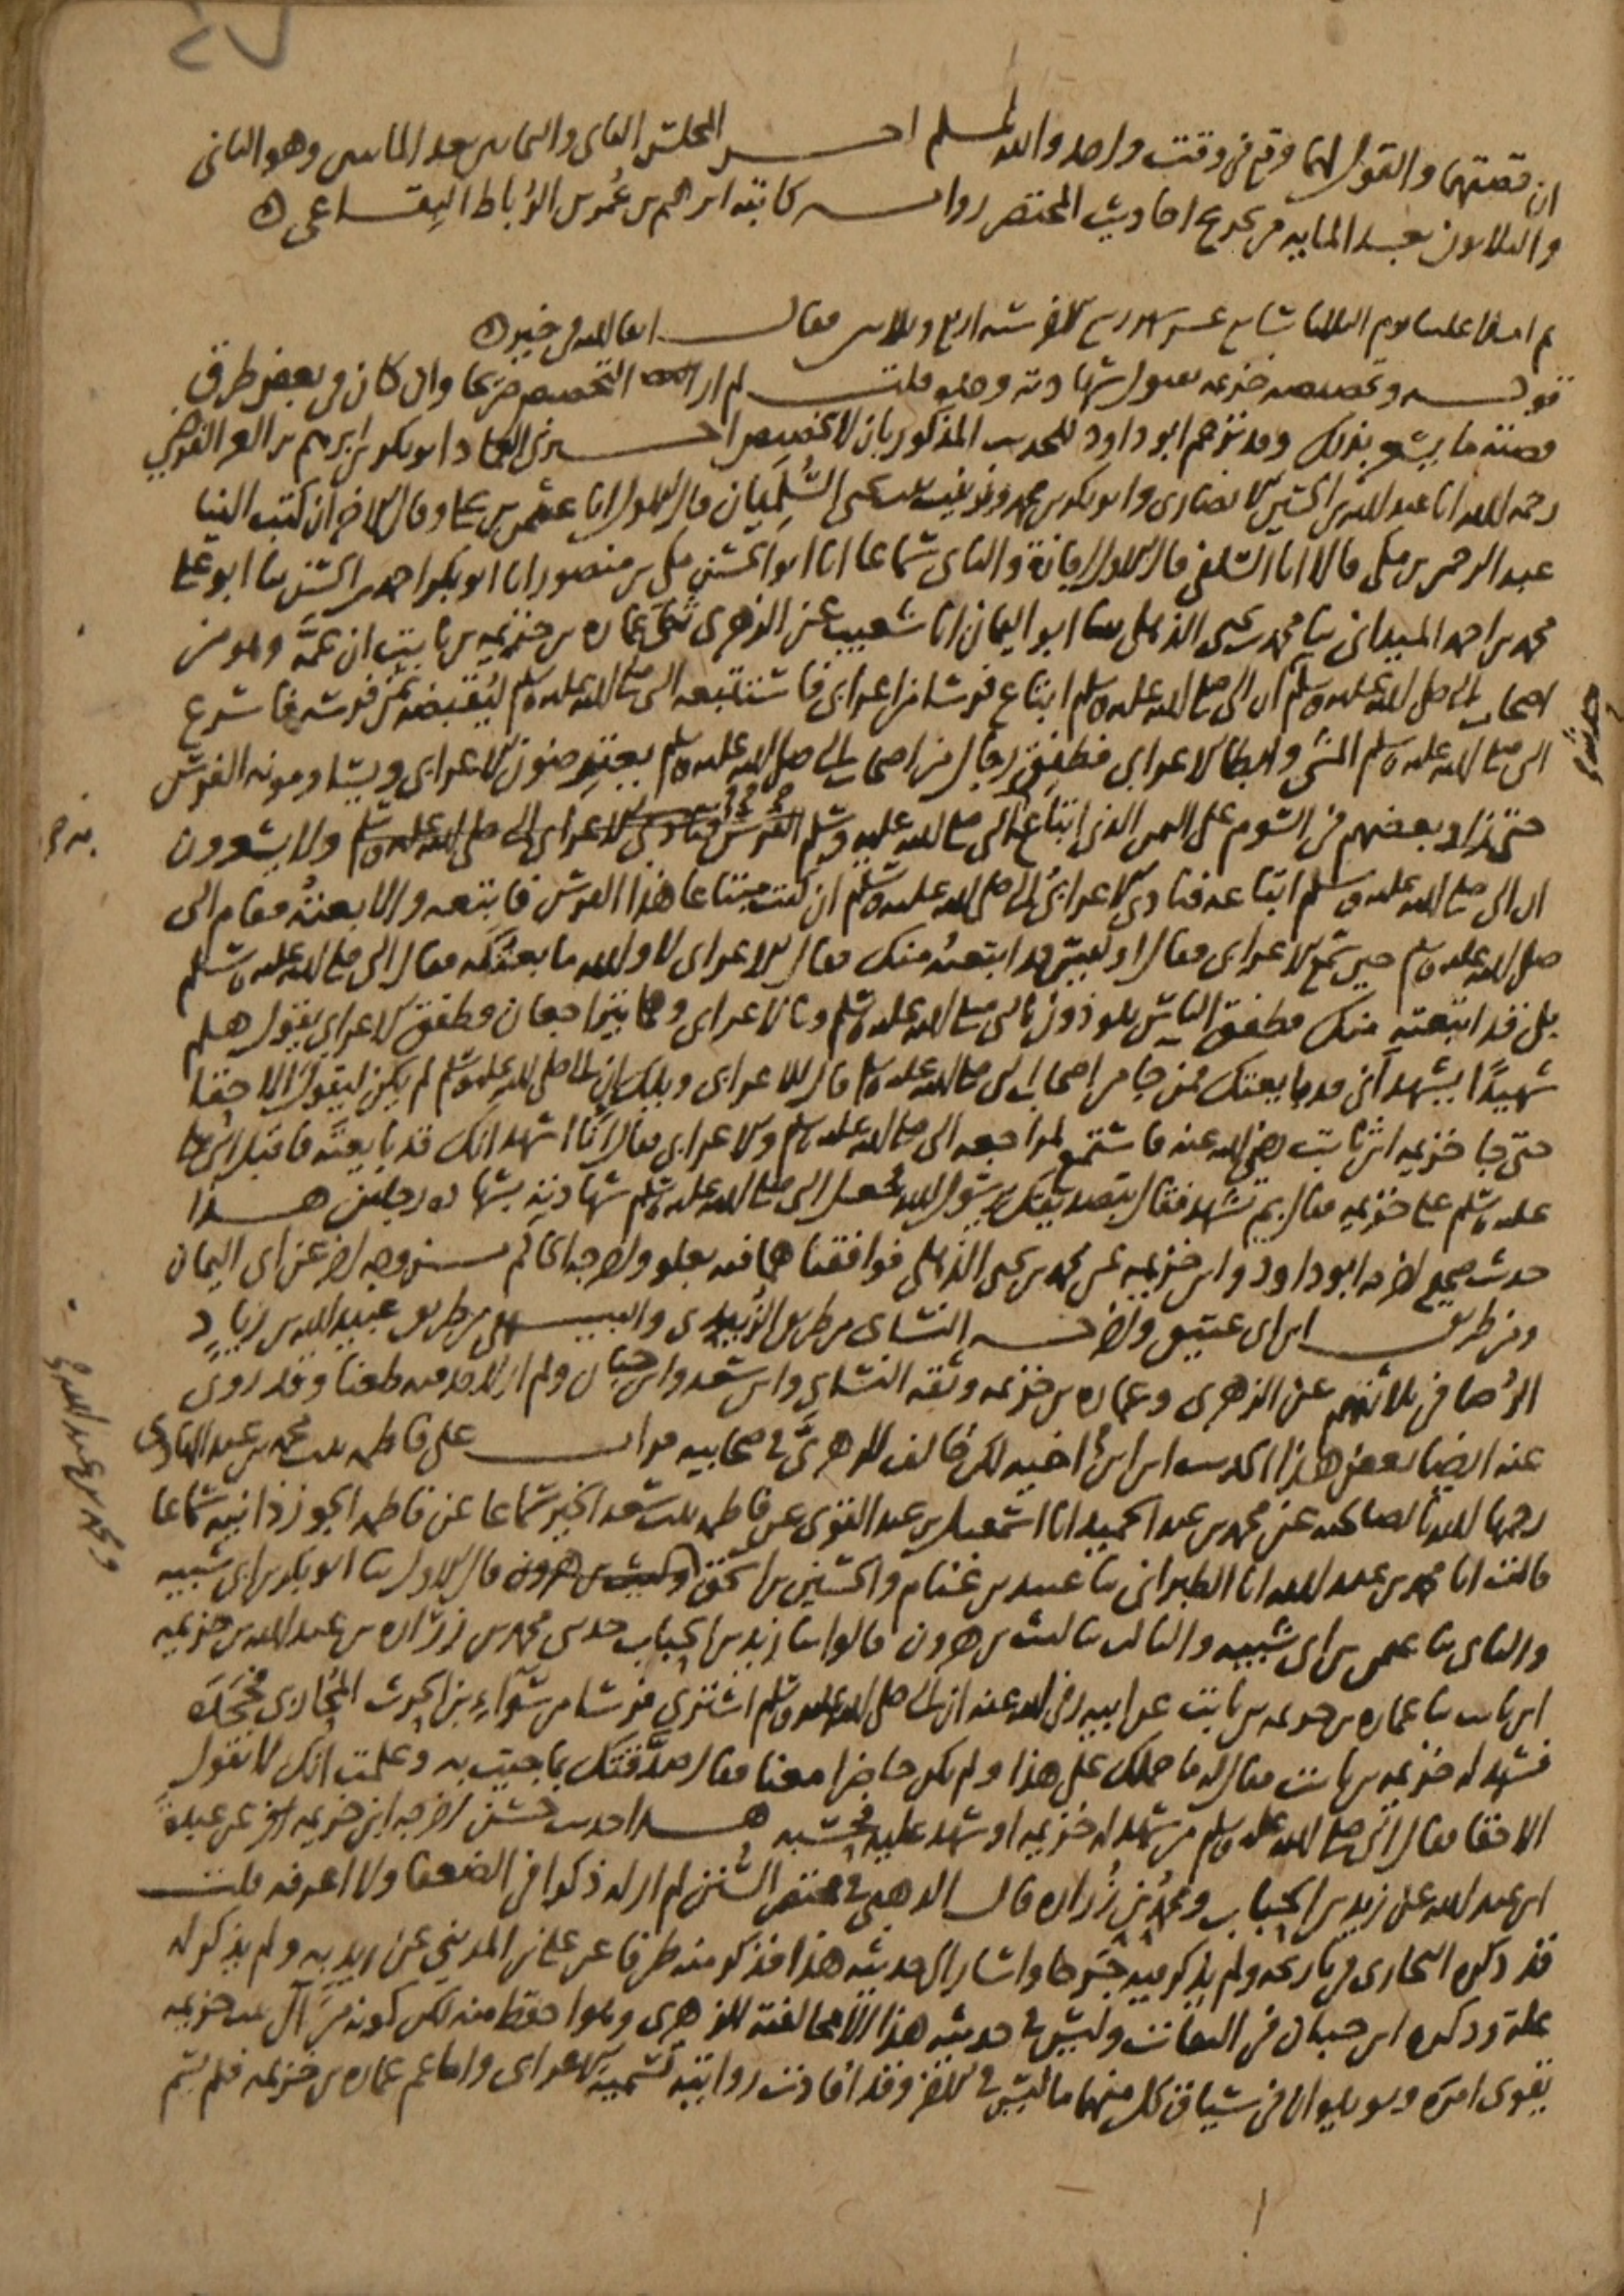 ان قصتهما والقول لهما وقع في وقت واحد والله اعلم اخر المجلس الثاني والثمانين بعد المائتين وهو الثاني
والثلاثون بعد المايه من تخريج احاديث المختصر روايه كاتبه ابرهيم بن عُمر بن الرُباط البِقاعي
ثم املانا علينا يوم الثلاثا سابع عشر شهر ربيع الاخر سنه اربع وثلاثين فقال ابقاه الله في خير
قوله وتخصيصه خزيمه بقبول شهادته وحده قلت لم ار التخصيص صريحا وان كان في بعض طرق
قصته ما يشعر بذلك وقد ترجم ابو داود للحديث المذكور بان لا تخصيص اخبرني العماد ابو بكر بن ابرهيم بن العز الفرضي
رحمه الله انا عبد الله بن الحسين الانصاري وابو بكر بن محمد وزينب بنت يحيى السُّلَمِيّان قال الاول انا عثمن بن علي وقال الاخران كتب الينا
عبد الرحمن بن مكي قالا انا السلفي قال الاول اجازة والثاني سماعا انا ابو الحسن مكي بن منصور انا ابو بكر احمد بن الحسن ثنا ابو علي
محمد بن احمد الميداني ثنا محمد بن يحيى الذهلي ثنا ابو اليمان انا شعيب عن الزهري ثنى عماره بن خزيمه بن ثابت ان عمَّه وهو من
اصحاب النبي صلى الله عليه وسلم ان النبي صلى الله عليه وسلم ابتاع فرسا من اعرابي فاستتبعه النبي صلى الله عليه وسلم ليُقبضه ثمن فرسه فاسرع
النبي صلى الله عليه وسلم المشي وابطا الاعرابي فطفِق رجال من اصحاب النبي صلى الله عليه وسلم يعترضون الاعرابي ويساومونه الفرس
حتى زاد بعضهم في السوم على الثمن الذي ابتاع به النبي صلى الله عليه وسلم الفرس فنادى الاعرابي النبي صلى الله عليه وسلم ولا يشعرون
ان النبي صلى الله عليه وسلم ابتاعه فنادى الاعرابيُ النبي صلى الله عليه وسلم ان كنت مبتاعا هذا الفرس فابتعه والا بعتُه فقام النبي
صلى الله عليه وسلم حين سمع الاعرابي فقال او ليس قد ابتعتُه منك فقال الاعرابي لا والله ما بعتُكه فقال النبي صلى الله عليه وسلم
بلى قد ابتعته منك فطفق الناس يلوذون بالنبي صلى الله عليه وسلم وبالاعرابي وهما يتراجعان فطفق الاعرابي يقول هلم
شهيدًا يشهد اني قد بايعتك فمن جا من اصحاب النبي صلى الله عليه وسلم قال للاعرابي ويلك ان النبي صلى الله عليه وسلم لم يكن ليقول الا حقا
حتى جا خزيمه بن ثابت رضي الله عنه فاستمع لمراجعه النبي صلى الله عليه وسلم والاعرابي فقال انا اشهد انك قد بايعته فاقبل النبي صلى الله
عليه وسلم على خزيمه فقال بم تشهد فقال بتصديقك يا رسول الله فجعل النبي صلى الله عليه وسلم شهادته بشهاده رجلين هذا
حديث صحيح اخرجه ابو داود وابن خزيمه عن محمد بن يحيى الذهلي فوافقناهما فيه بعلو واخرجه الحاكم من وجه اخر عن ابي اليمان
ومن طريق ابن ابي عتيق واخرجه النسائي من طريق الزُبيدي والبيهقي من طريق عبيد الله بن زياد
الرُصافي ثلاثتهم عن الزهري وعماره بن خزيمه وثقه النسائي وابن سعد وابن حبان ولم ار لاحد فيه طعنا وقد روى
عنه ايضا بعض هذا الحديث ابن ابن اخيه لكن خالف الزهريَّ في صحابيه قرات على فاطمه بنت محمد بن عبد الهادي
رحمها الله بالصالحيه عن محمد بن عبد الحميد انا اسمعيل بن عبد القوي عن فاطمه بنت سعد الخير سماعا عن فاطمه الجوزذانيه سماعا
قالت انا محمد بن عبد الله انا الطبراني ثنا عبيد بن غنام والحسين بن اسحق وليث بن هرون قال الاول ثنا ابو بكر بن ابي شيبه
والثاني ثنا عثمن بن ابي شيبه والثالث ثنا ليث بن هرون قالوا ثنا زيد بن الحباب حدثني محمد بن زراره بن عبد الله بن خزيمه
ابن ثابت ثنا عماره بن خزيمه بن ثابت عن ابيه رضي الله عنه ان النبي صلى الله عليه وسلم اشترى فرسا من سَوآءِ بن الحرث المُحاربي فجحَدَه
فشهد له خزيمه بن ثابت فقال له ما حملك على هذا ولم تكن حاضرا معنا فقال صدَّقتك بما جيت به وعلمت انك لا تقول
الا حقا فقال النبي صلى الله عليه وسلم من شهد له خزيمه او شهد عليه فحسبه هذا حديث حسن اخرجه ابن خزيمه عن عبدة
ابن عبد الله عن زيد بن الحباب ومحمدُ بن زُراره قال الذهبي في مختصر السُّنن لم ار له ذكرا في الضعفا ولا اعرفه قلت
قد ذكره البخاري في تاريخه ولم يذكر فيه جَرحا واشار الى حديثه هذا فذكر منه طرفا عن علي بن المديني عن زيد به ولم يذكر له
علة وذكره ابن حبان في الثقات وليس في حديثه هذا الا مخالفته للزهري وهو احفظ منه لكن كونه من آل بيت خزيمه
يقوى امره ويو يليو ان في سياق كل منهما ما ليس في الاخر وقد افادت روايته تسمية الاعرابي واما عم عماره بن خزيمه فلم يسم